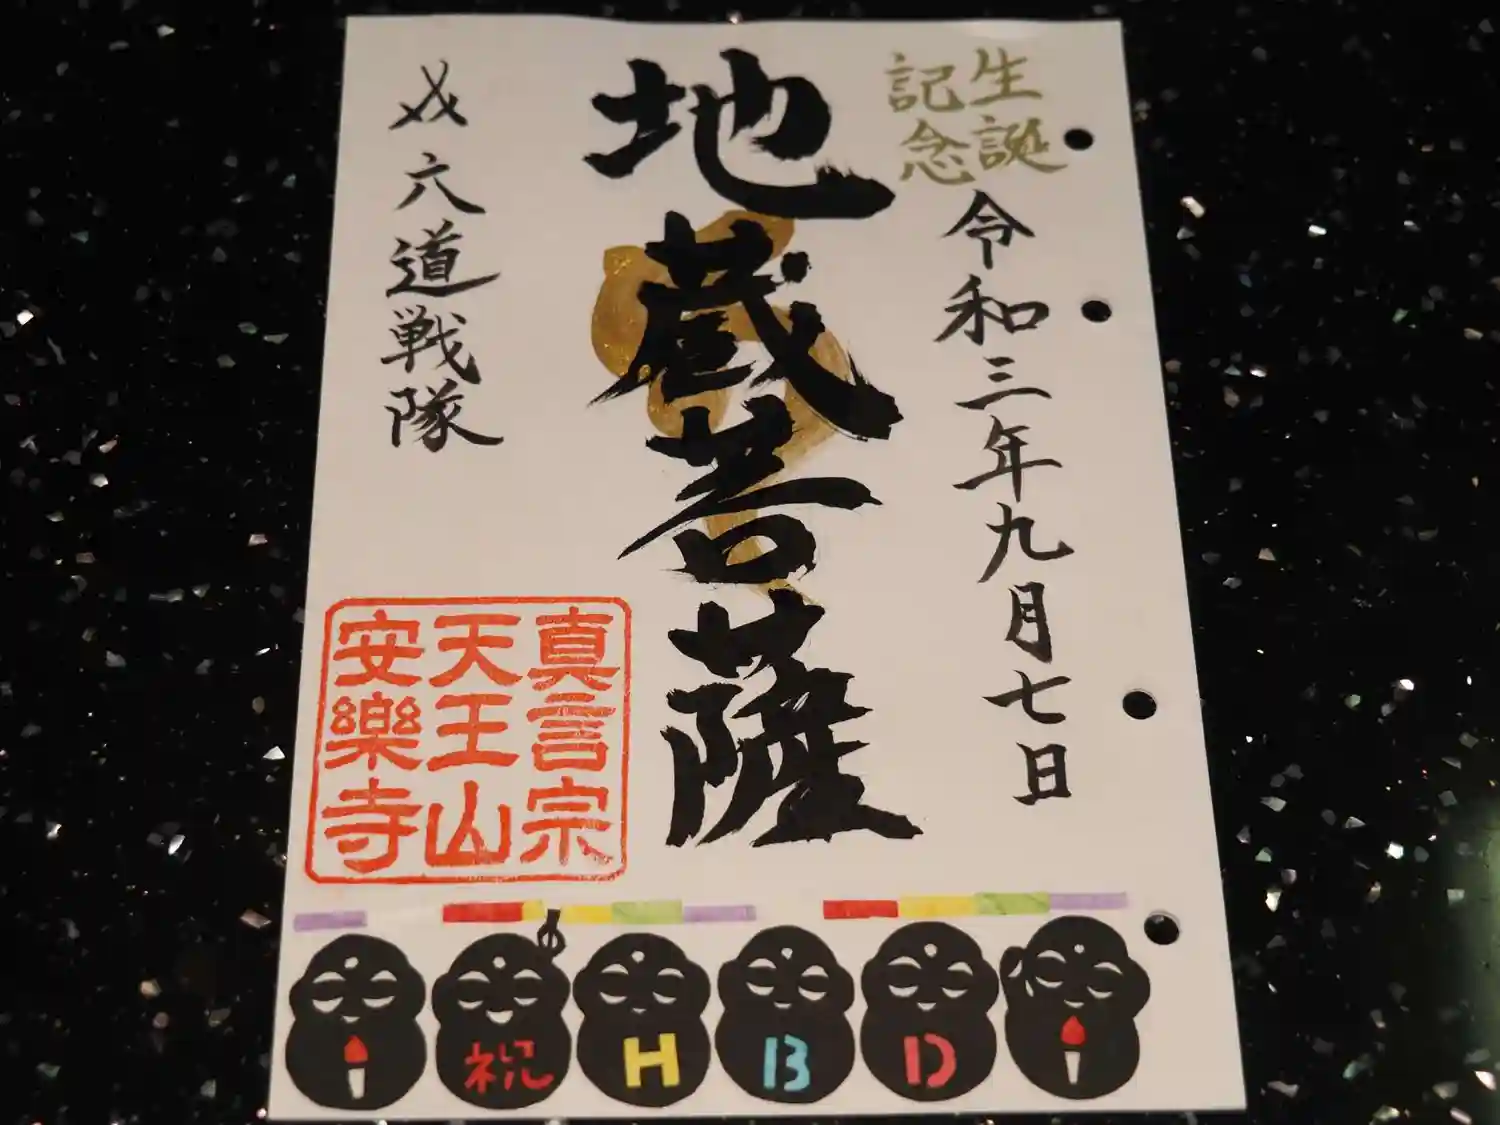 生誕
記念
令和三年九月七日
地蔵菩薩
六道戦隊
真言宗
天王山
安樂寺
祝HBD